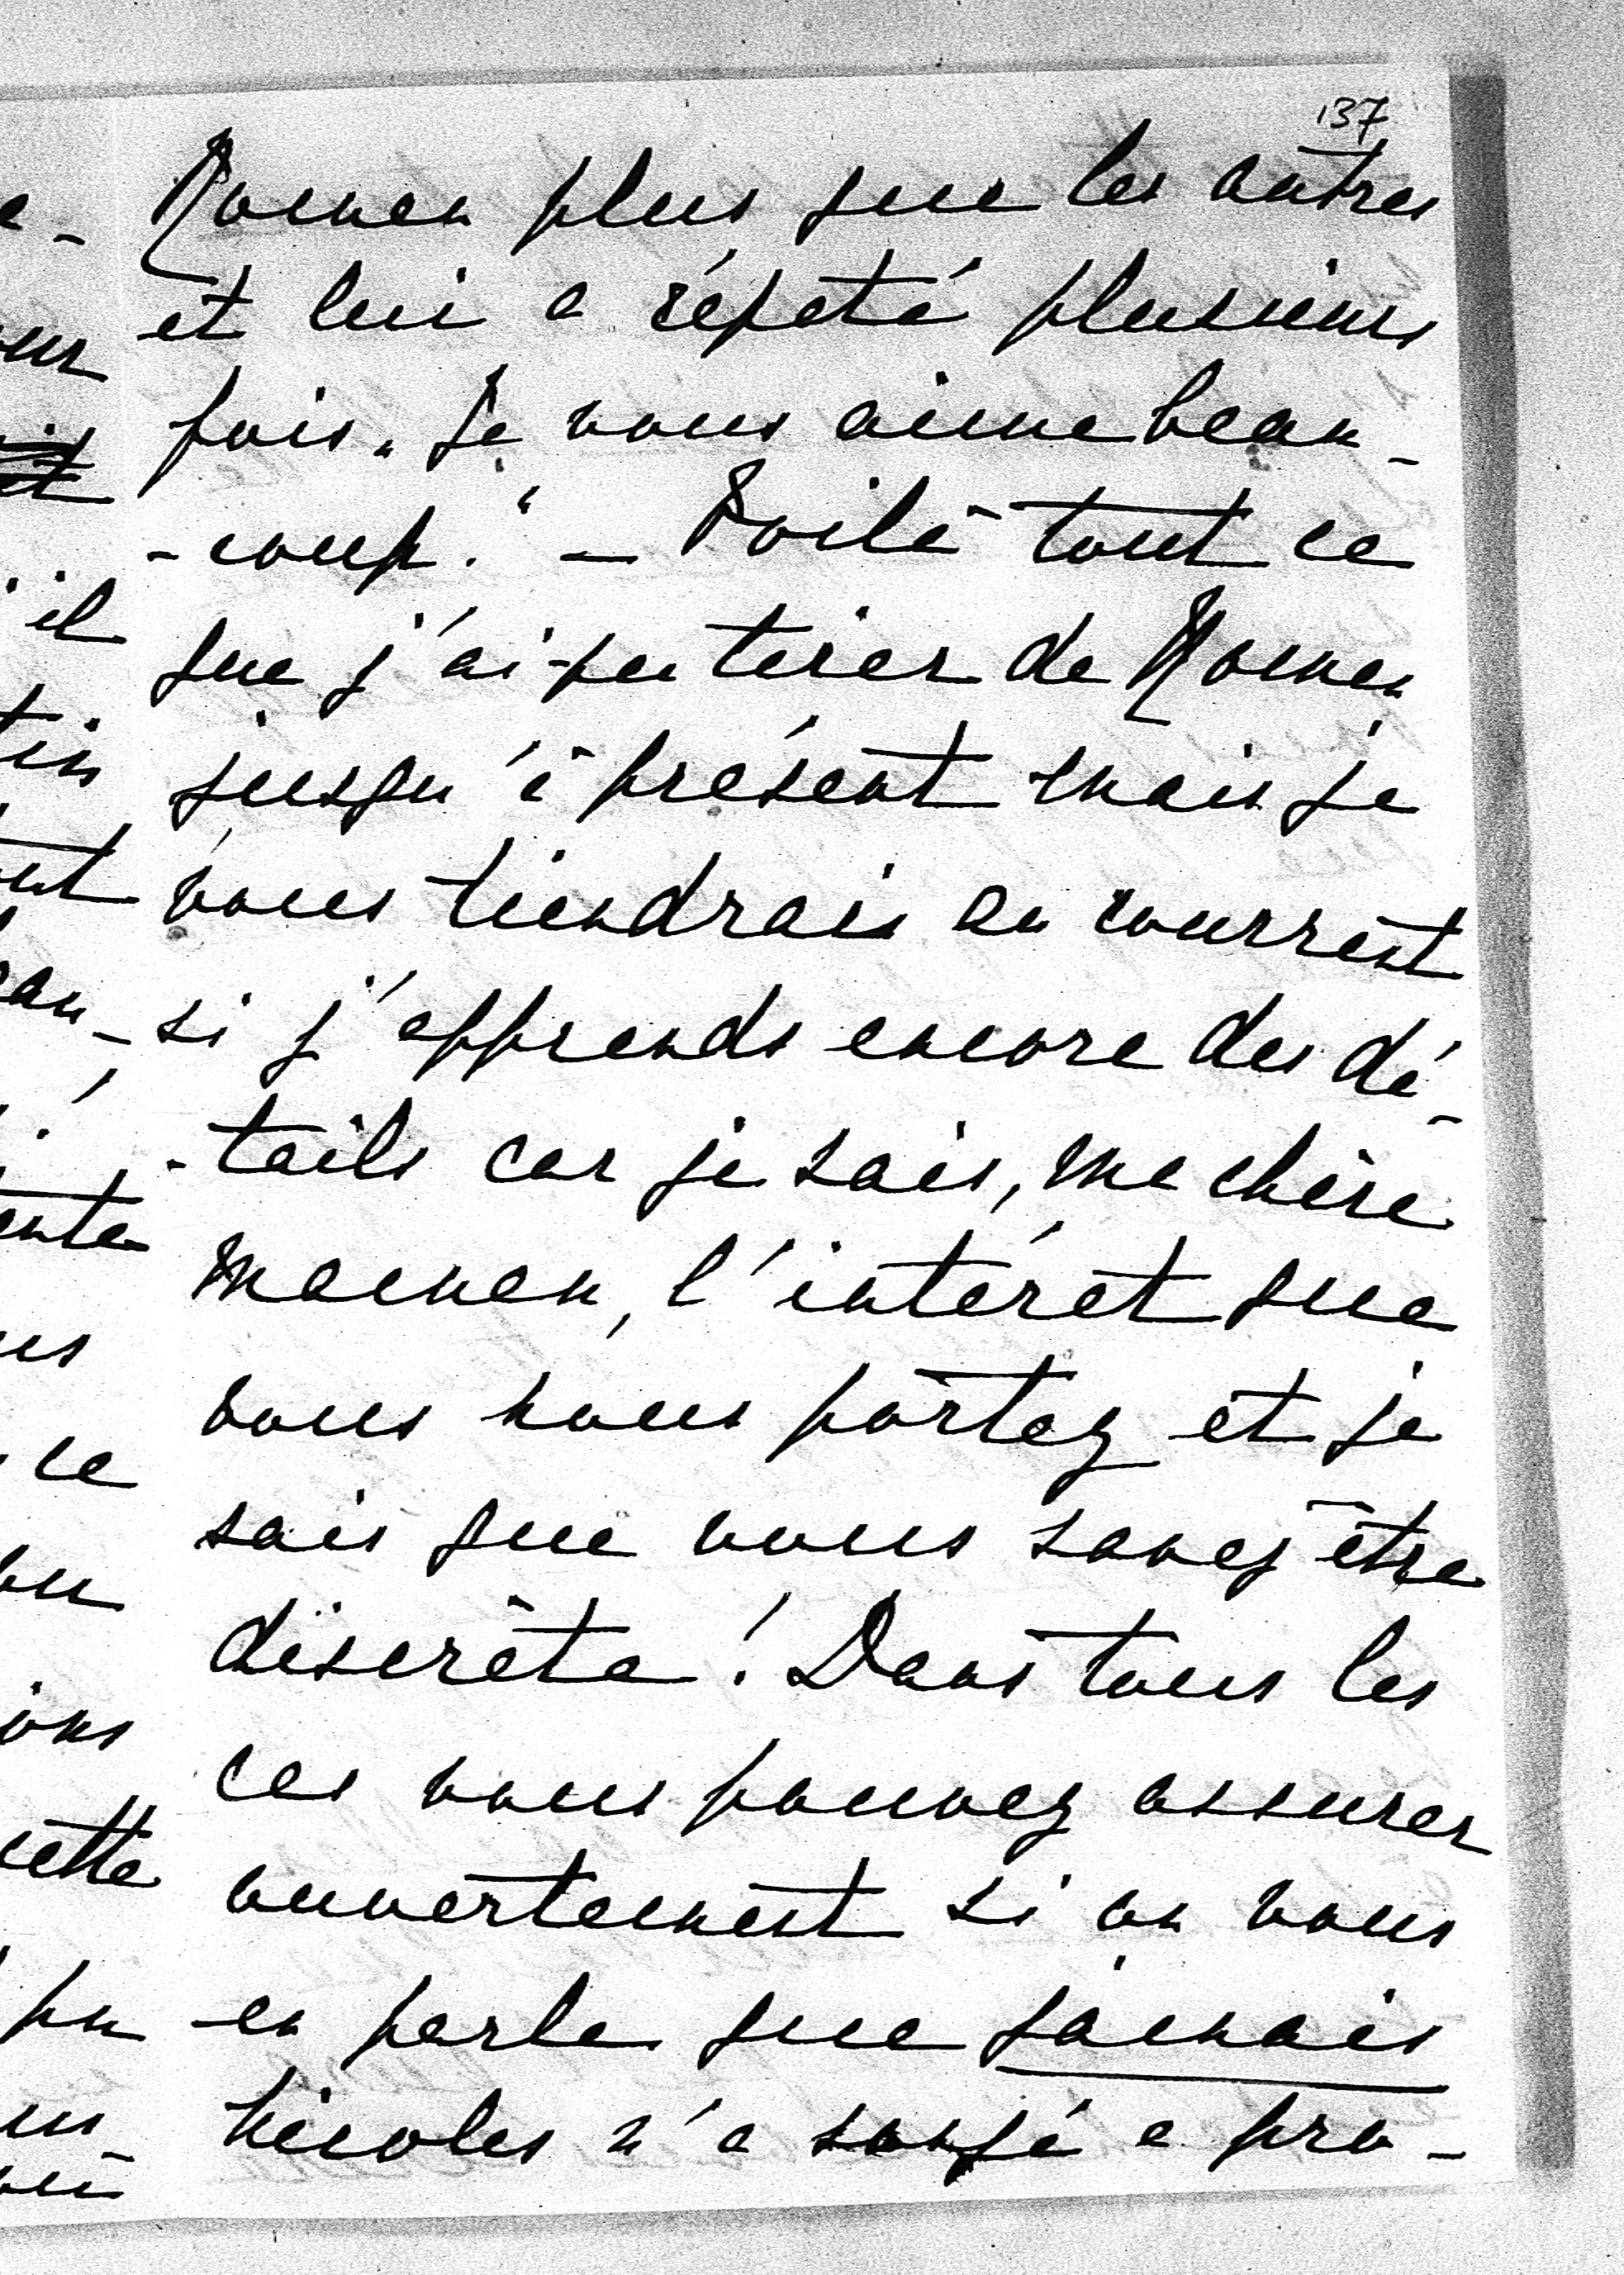 137
Roman plus que les autres
et lui a répété plusieurs
fois „Je vous aime beau-
-coup." — Voilà tout ce
que j'ai pu tirer de Roman
jusqu'à présent mais je
vous tiendrais au courrent
si j'apprends encore des dé-
-tails car je sais, ma chère
maman, l'intérêt que
vous nous portez et je
sais que vous savez être
discrète! Dans tous les
cas vous pouvez assurer
ouvertement si on vous
en parle que jamais
Nicolas n'a songé a pro-